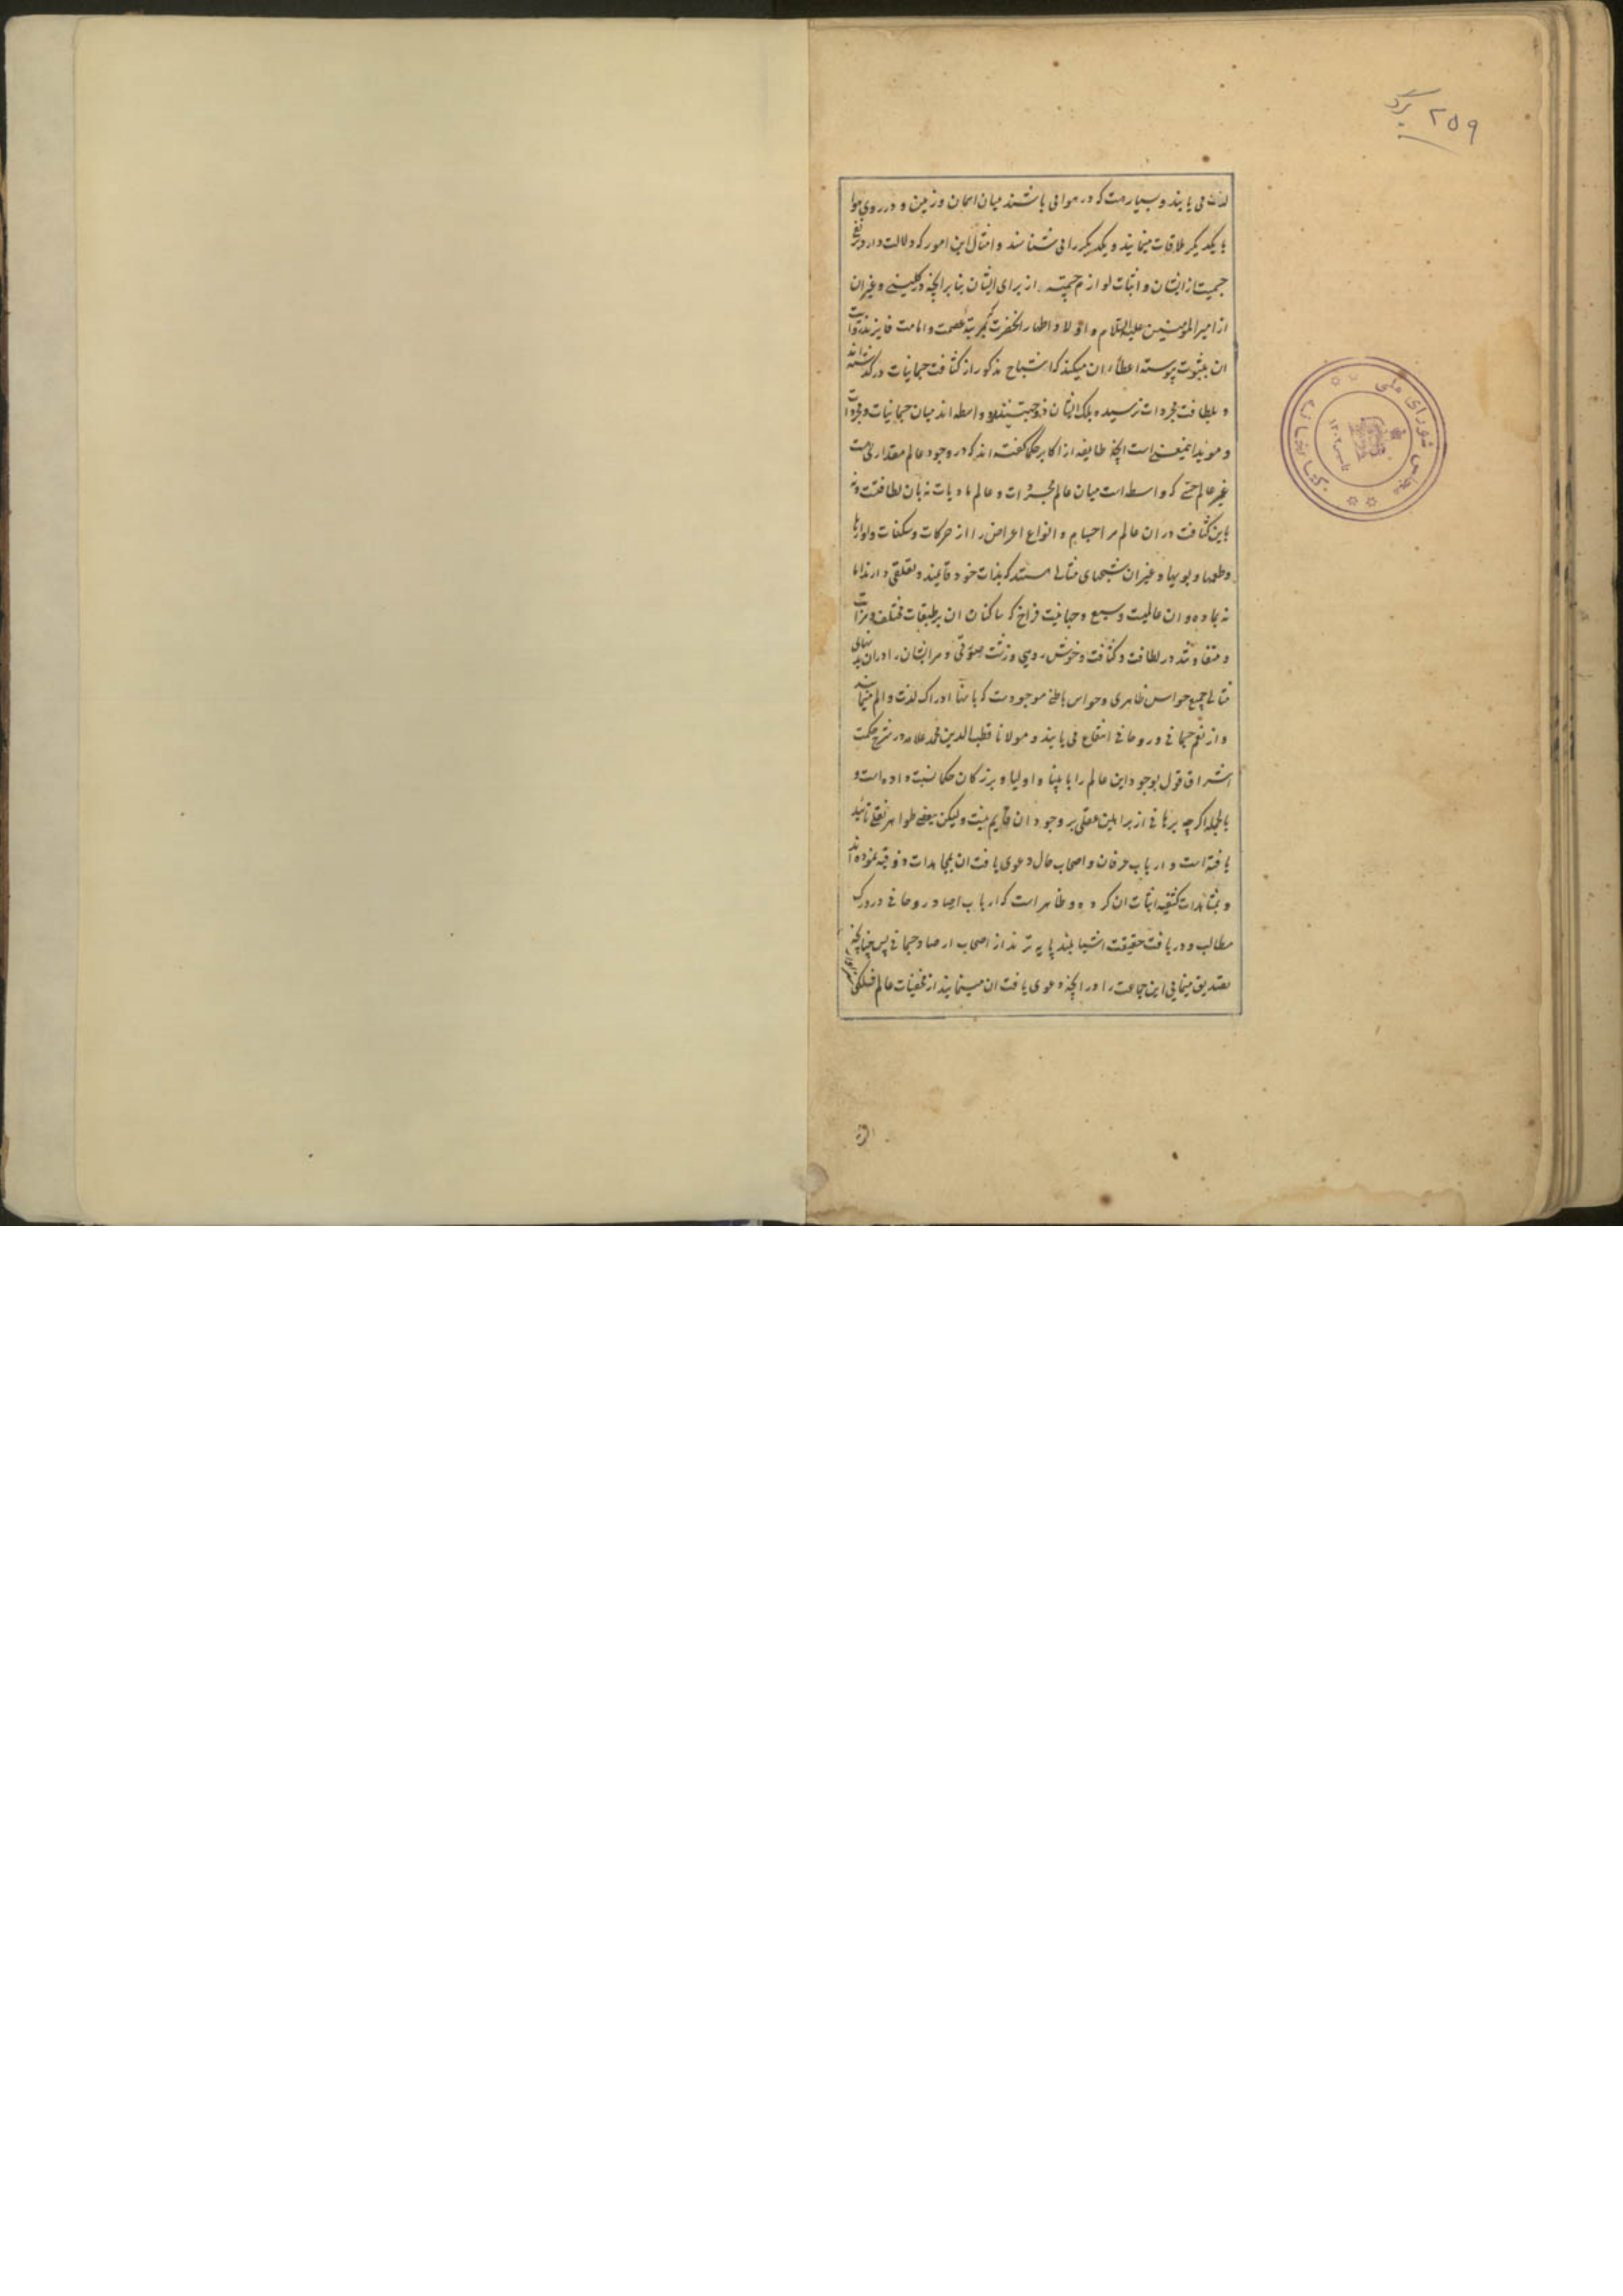 ۲۵۹ برگ
لذت می یابند و بسیار هست که در هوا می باشند میان آسمان و زمین و در روی هوا
با یکدیگر ملاقات مینمایند و یکدیگر را می شناسند و امثال این امور که دلالت دارد بر نفی
جسمیت از ایشان و اثبات لوازم جسمیه از برای ایشان بنا بر آنچه در کلینی و غیر آن
از امیرالمؤمنین علیه السلام و اولاد اطهار آنحضرت که بمرتبه عصمت و امامت فایزند روایت
ان بثبوت پیوسته اعطاء ان میکند که اشباح مذکور از کثافت جسمانیات در گذشته اند
و بلطافت مجردات نرسیده بلکه ایشان ذوجهتینند و واسطه اند میان جسمانیات و مجردات
و موید اینمعنی است آنچه طایفه از اکابر حکما گفته اند که در وجود عالم مقداری هست
غیر عالم حسی که واسطه است میان عالم مجردات و عالم مادیات نه بان لطافتست و نه
باین کثافت در ان عالم مر اجسام و انواع اعراض را از حرکات و سکنات و آوازها
و طعمها و بویها و غیر ان شبحهای مثالی هستند که بذات خود قایمند و تعلقی دارند اما
نه بماده و ان عالمیست وسیع و جهانیست فراخ که ساکنان ان بر طبقات مختلفه و مراتب
و متفاوتند در لطافت و کثافت و خوش رویی و زشت صورتی و مر ایشان را در ان بدنهای
مثالی جمیع حواس ظاهری و حواس باطنی موجود هست که بانها ادراک لذت و الم مینمایند
و از نعم جسمانی و روحانی انتفاع می یابند و مولانا قطب الدین محمد علامه در شرح حکمت
اشراق قول بوجود این عالم را بانبیا و اولیا و بزرگان حکما نسبت داده است و
بالجمله اگرچه برهانی از براهین عقلی بر وجود ان قایم نیست ولیکن ببعضی ظواهر نقلی تائید
یافته است و ارباب عرفان و اصحاب حال دعوی یافت ان بمجاهدات ذوقیه نموده اند
و بمشاهدات کشفیه اثبات ان کرده و ظاهر است که ارباب ارصاد روحانی در درک
مطالب و دریافت حقیقت اشیا بلند پایه ترند از اصحاب ارصاد جسمانی پس چنانچه
تصدیق مینمایی این جماعت را در آنچه دعوی یافت ان مینمایند از مخفیات عالم فلکی
مجلس شورای ملی
کتابخانه
تاسیس ۱۳۰۲